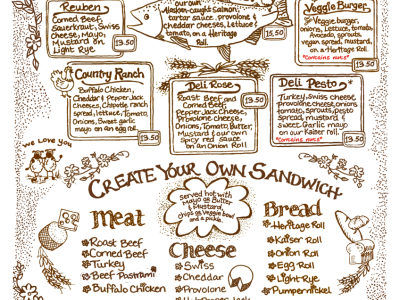 Reuben
Corned Beef,
Sauerkraut, Swiss
cheese, Mayo,
Mustard on
Light Rye
13.50
our own
Alaskan-caught Salmon,
tartar sauce, provolone &
cheddar cheeses, Lettuce &
tomato, on a Heritage
Roll
15.50
Veggie Burger
Veggie burger,
onions, Lettuce, tomato,
Avocado, sprouts,
vegan spread, mustard,
on a Heritage Roll
*contains nuts*
13.50
Country Ranch
Buffalo Chicken,
Cheddar & Pepper Jack
cheeses, Chipotle ranch
spread, lettuce, Tomato,
Onions, Sweet garlic
mayo on an egg roll
13.50
Deli Rose
Roast Beef and
Corned Beef,
Pepper Jack Cheese,
Provolone cheese,
Onions, Tomato, Butter,
Mustard & our own
Spicy red sauce
on an Onion Roll!
13.50
Deli Pesto*
Turkey, Swiss cheese
provolone cheese, onions
tomato, sprouts, pesto
spread, mustard &
sweet Garlic mayo
on our Kaiser roll.
*contains nuts*
13.50
We Love You
Create Your Own Sandwich
served hot with
Mayo or Butter
& Mustard,
chips or veggie bowl
and a pickle.
Meat
Roast Beef
Corned Beef
Turkey
Beef Pastrami
Buffalo Chicken
Cheese
Swiss
Cheddar
Provolone
Bread
Heritage Roll
Kaiser Roll
Onion Roll
Egg Roll
Light Rye
Pumpernickel